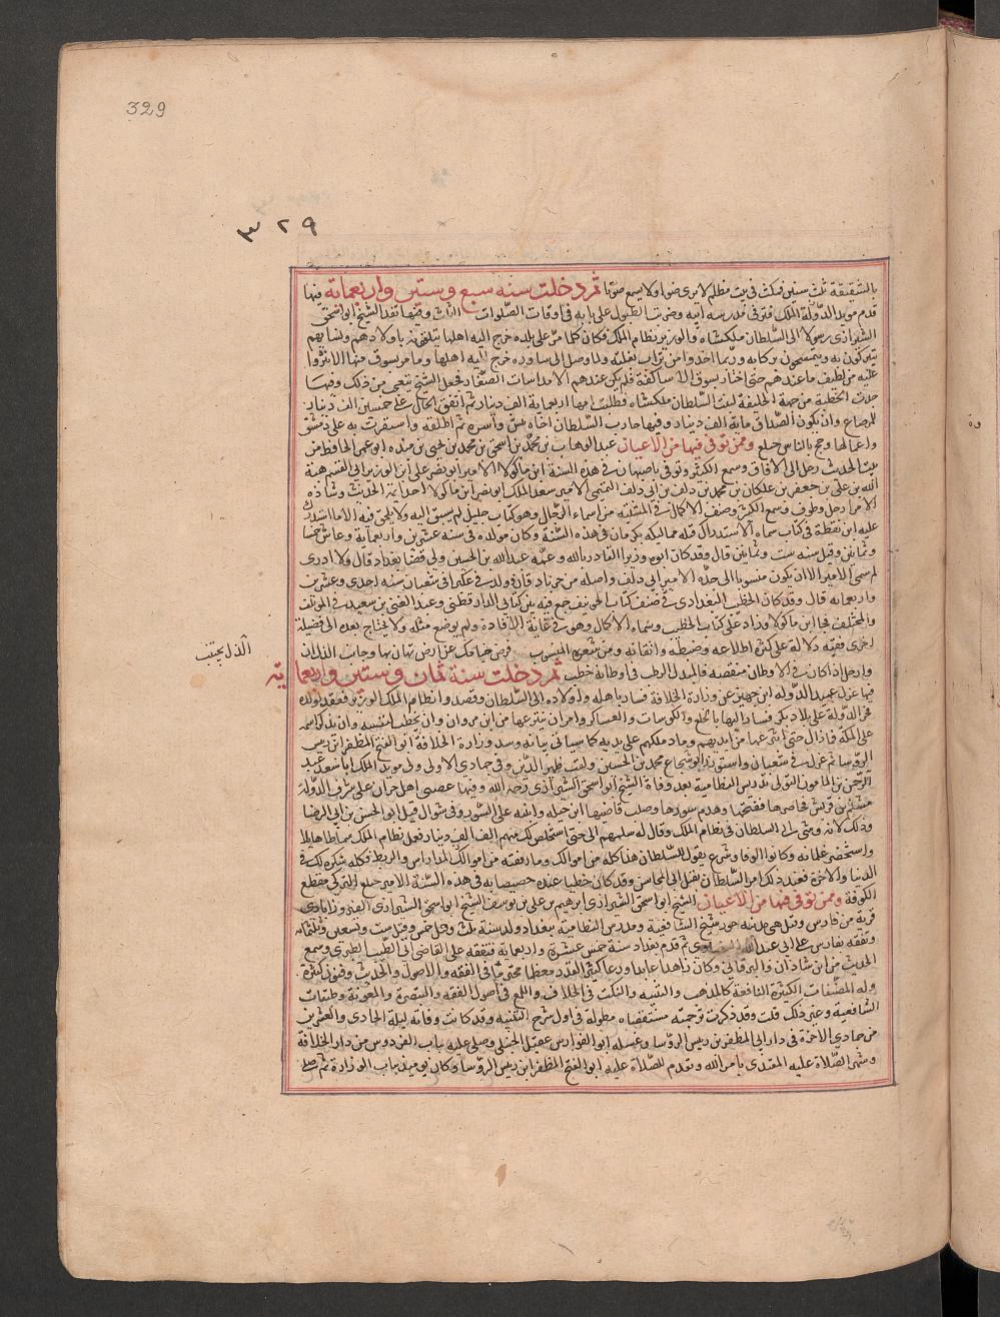 329
٣٢٩
بالشقيقة ثلث سنين فمكث في بيت مظلم لا يرى ضوا ولا يسمع صوتا ثم دخلت سنه سبع وستين واربعمائة فيها
قدم مويد الدولة الملك فنزل في مدرسه ابيه وضربت الطبول على بابه في اوقات الصلوات الثلاث وفيها نفذ الشيخ ابو اسحق
الشيرازي رسولا الى السلطان ملكشاه والوزير نظام الملك فكان كلما مر على بلده خرج اليه اهلها يتلقونه باولادهم ونسايهم
يتبركون به ويتمسحون بركابه وربما اخذوا من تراب بغلته ولما وصل الى ساوه خرج اليه اهلها وما مر بسوق منها الا نثروا
عليه من لطيف ما عندهم حتى اجتاز بسوق الاساكفة فلم يكن عندهم الا مداسات الصغار فجعل الشيخ يتعجب من ذلك وفيها
جددت الخطبة من جهة الخليفة لبنت السلطان ملكشاه فطلبت امها اربعماية الف دينار ثم اتفق الحال على خمسين الف دينار
للرضاع وان يكون الصداق ماية الف دينار وفيها حارب السلطان اخاه تتش واسره ثم اطلقه واستقرت يده على دمشق
واعمالها وحج بالناس ختلع وممن توفى فيها من الاعيان عبد الوهاب بن محمد بن اسحق بن محمد بن يحيى بن منده ابو عمرو الحافظ من
بيت الحديث رحل الى الافاق وسمع الكثير وتوفي باصبهان في هذه السنة ابن ماكولا الامير ابو نصر علي ابن الوزير ابي القسم هبة
الله بن علي بن جعفر بن علكان بن محمد بن دلف بن ابي دلف التميمي الامير سعد الملك ابو نصر ابن ماكولا احد ائمة الحديث وسادة
الامرا رحل وطوف وسمع الكثير وصنف الاكمال في المشتبه من اسماء الرجال وهو كتاب جليل لم يسبق اليه ولا يلحق فيه الا ما استدرك
عليه ابن نقطة في كتاب سماه الاستدراك قتله مماليكه بكرمان في هذه السنة وكان مولده في سنه عشرين واربعماية وعاش خمسا
وثمانين وقيل سنه ست وثمانين قال وقد كان ابوه وزيرا للقادر بالله وعمه عبد الله بن الحسين ولي قضا بغداد قال ولا ادري
لم سمي الامير الا ان يكون منسوبا الى جده الامير ابي دلف واصله من جرباذقان وولد في عكبرا في شعبان سنه احدى وعشرين
واربعمايه قال وقد كان الخطيب البغدادي قد صنف كتاب المؤتنف جمع فيه بين كتابي الدارقطني وعبد الغني بن سعيد في المؤتلف
والمختلف فجا ابن ماكولا وزاد على كتاب الخطيب وسماه الاكمال وهو في غاية الافادة ولم يوضع مثله ولا يحتاج بعده الى فضيلة
اخرى ففيه دلالة على كثرة اطلاعه وضبطه واتقانه ومن شعره المنسوب قوض خيامك عن ارض تهان بها وجانب الذل ان
الذل يجتنب
وارحل اذا كان في الاوطان منقصه فالمندل الرطب في اوطانه حطب ثم دخلت سنة ثمان وستين واربعماية
فيها عزل عميد الدوله ابن جهير عن وزارة الخلافة فسار باهله واولاده الى السلطان وقصدوا نظام الملك الوزير فعقد لولده
فخر الدولة على بلاد بكر فسار اليها بالخلع والكوسات والعساكر وامر ان ينتزعها من ابن مروان وان يخطب لنفسه وان يذكر اسمه
على السكة فما زال حتى انتزعها من ايديهم وباد ملكهم على يديه كما سياتي بيانه وسد وزارة الخلافة ابو الفتح المظفر ابن رييس
الروسا ثم عزل في شعبان واستوزر ابو شجاع محمد بن الحسين ولقب ظهير الدين وفي جمادى الاولى ولي مويد الملك ابا سعد عبد
الرحمن بن المامون المتولي تدريس النظامية بعد وفاة الشيخ ابو اسحق الشيرازي رحمه الله وفيها عصى اهل حران على شرف الدولة
مسلم بن قريش فحاصرها ففتحها وهدم سورها وصلب قاضيها ابن جبله وابنيه على السور وفي شوال قتل ابو الحسن بن ابي الرضا
وذلك لانه وشى الى السلطان في نظام الملك وقال له سلمهم الي حتى استخلص لك منهم الف الف دينار فعمل نظام الملك سماطا هايلا
واستحضر غلمانه وكانوا الوفا وشرع يقول للسلطان هذا كله من اموالك وما وقفته من اموالك المدارس والربط فكله شكره لك في
الدنيا والاخرة فعند ذلك امر السلطان بقتل ابي المحاسن وقد كان حظيا عنده خصيصا به في هذه السنة الامير ختلع التركي مقطع
الكوفة وممن توفى فيها من الاعيان الشيخ ابو اسحق الشيرازي ابرهيم بن علي بن يوسف الشيخ ابو اسحق الشيرازي الفيروزابادي
قرية من فارس وقيل هي مدينه جور شيخ الشافعية ومدرس النظامية ببغداد ولد سنة ثلث وقيل خمس وقيل ست وتسعين وثلثمائه
وتفقه بفارس على ابي عبد الله البيضاوي ثم قدم بغداد سنة خمس عشرة واربعماية فتفقه على القاضي ابي الطيب الطبري وسمع
الحديث من ابن شاذان والبرقاني وكان زاهدا عابدا ورعا كبير القدر معظما محترما في الفقه والاصول والحديث وفنون كثيرة
وله المصنفات الكثيرة النافعة كالمهذب والتنبيه والنكت في الخلاف واللمع في اصول الفقه والتبصرة والمعونة وطبقات
الشافعية وغير ذلك قلت وقد ذكرت ترجمته مستقصاه مطولة في اول شرح التنبيه وقد كانت وفاته ليلة الحادي والعشرين
من جمادى الاخرة في دار ابي المظفر بن رييس الروسا وغسله ابو الوفا بن عقيل الحنبلي وصلي عليه بباب الفردوس من دار الخلافة
وشهد الصلاة عليه المقتدي بامر الله وتقدم للصلاة عليه ابو الفتح المظفر ابن رييس الروسا وكان يوميذ بباب الوزارة ثم صلي